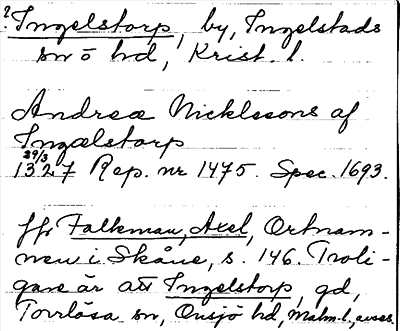 ? Ingelstorp, by, Ingelstads
sn o hd, Krist. l.
Andreæ Nicklssons af
Ingælstorp
29/3
1327 Rep. nr 1475. Spec. 1693.
Jfr Falkman, Axel, Ortnam-
nen i Skåne, s. 146. Troli-
gare är att Ingelstorp, gd,
Torrlösa sn, Onsjö hd, Malm. l., avses.